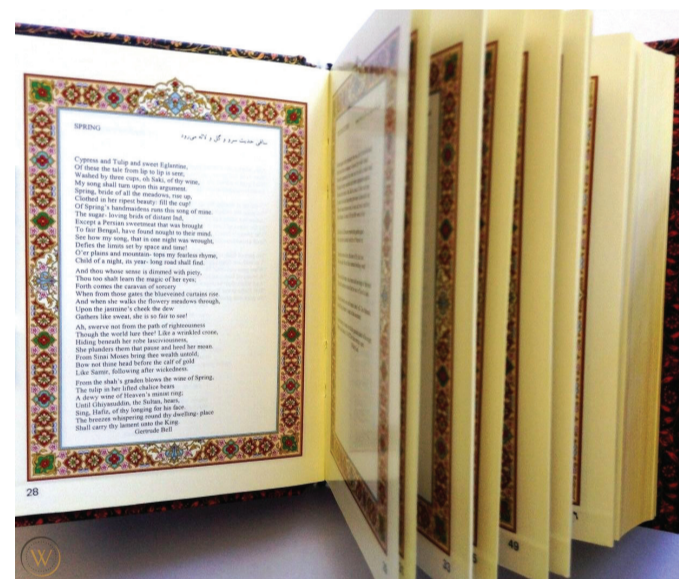 SPRING
ساقی حدیث سرو و گل و لاله می‌رود
Cypress and Tulip and sweet Eglantine,
Of these the tale from lip to lip is sent;
Washed by three cups, oh Saki, of thy wine,
My song shall turn upon this argument.
Spring, bride of all the meadows, rise up,
Clothed in her ripest beauty: fill the cup!
Of Spring's handmaidens runs this song of mine.
The sugar- loving birds of distant Ind,
Except a Persian sweetmeat that was brought
To fair Bengal, have found nought to their mind.
See how my song, that in one night was wrought,
Defies the limits set by space and time!
O'er plains and mountain- tops my fearless rhyme,
Child of a night, its year- long road shall find.
And thou whose sense is dimmed with piety,
Thou too shalt learn the magic of her eyes;
Forth comes the caravan of sorcery
When from those gates the blueveined curtains rise.
And when she walks the flowery meadows through,
Upon the jasmine's cheek the dew
Gathers like sweat, she is so fair to see!
Ah, swerve not from the path of righteousness
Though the world lure thee! Like a wrinkled crone,
Hiding beneath her robe lasciviousness,
She plunders them that pause and heed her moan.
From Sinai Moses bring thee wealth untold;
Bow not thine head before the calf of gold
Like Samir, following after wickedness.
From the shah's graden blows the wine of Spring,
The tulip in her lifted chalice bears
A dewy wine of Heaven's minist ring;
Until Ghiyasuddin, the Sultan, hears,
Sing, Hafiz, of thy longing for his face.
The breezes whispering round thy dwelling- place
Shall carry thy lament unto the King.
Gertrude Bell
28
33
49
W